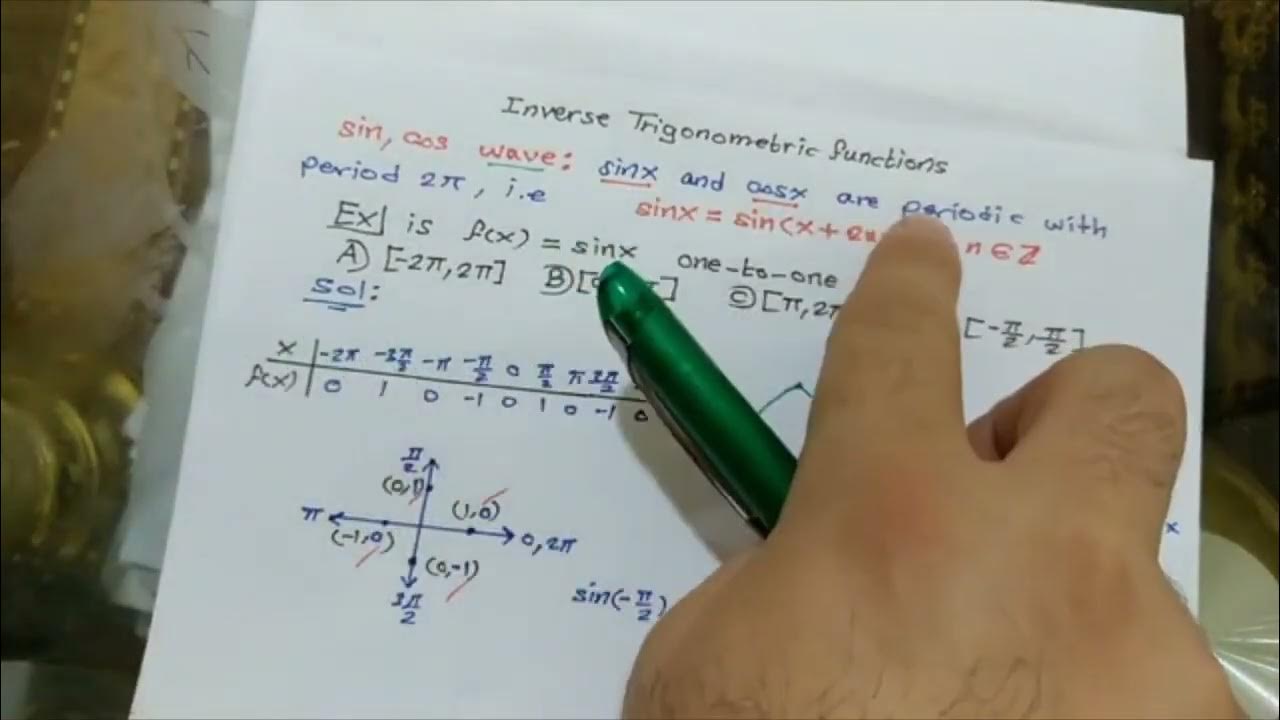 Inverse Trigonometric functions
sin, cos wave: sinx and cosx are periodic with
period 2π, i.e sinx = sin(x+2 n∈ℤ
Ex] is f(x) = sinx one-to-one
A) [-2π, 2π] B) [ ] C) [π, 2π [-π/2, π/2]
Sol:
x | -2π -3π/2 -π -π/2 0 π/2 π 3π/2
f(x) | 0 1 0 -1 0 1 0 -1 0
π/2
(0,1)
(1,0)
π (-1,0) 0, 2π
(0,-1)
3π/2
sin(-π/2)
x